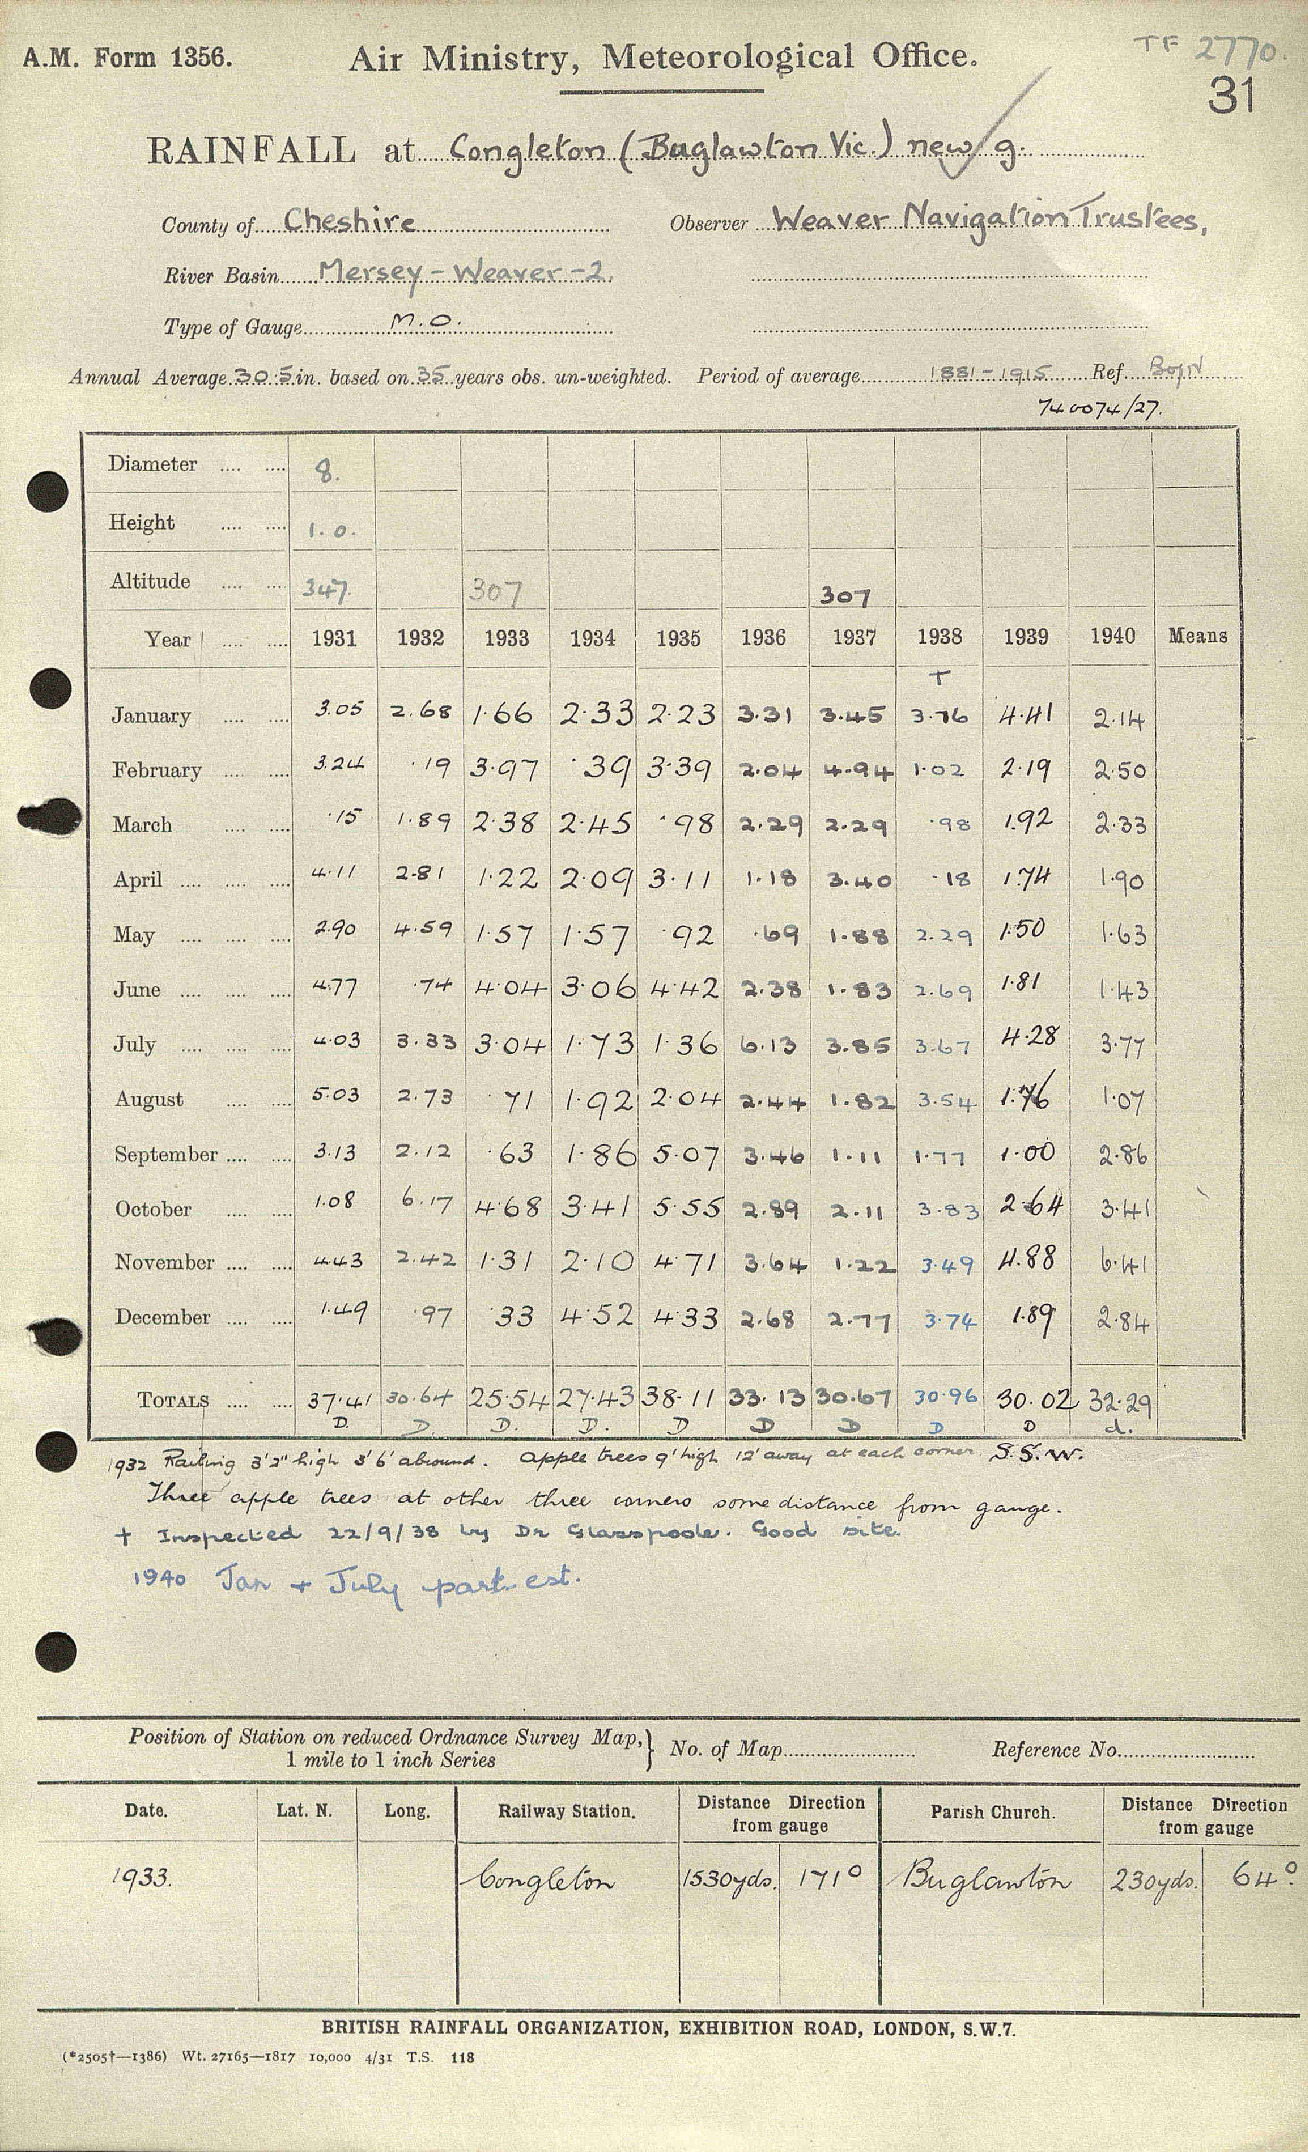 A.M. Form 1356. Air Ministry, Meteorological Office. TF 2770.
31
RAINFALL at Congleton (Buglawton Vic.) new g.
County of Cheshire Observer Weaver Navigation Trustees,
River Basin Mersey - Weaver - 2.
Type of Gauge M.O.
Annual Average 30.5 in. based on 35 years obs. un-weighted. Period of average 1881-1915 Ref.
740074/27.
Diameter .... .... 8.
Height .... .... 1.0.
Altitude .... .... 347. 307 307
Year .... .... 1931 1932 1933 1934 1935 1936 1937 1938 1939 1940 Means
+
January .... .... 3.05 2.68 1.66 2.33 2.23 3.31 3.45 3.76 4.41 2.14
February .... .... 3.24 .19 3.97 .39 3.39 2.04 4.94 1.02 2.19 2.50
March .... .... .15 1.89 2.38 2.45 .98 2.29 2.29 .98 1.92 2.33
April .... .... .... 4.11 2.81 1.22 2.09 3.11 1.18 3.40 .18 1.74 1.90
May .... .... .... 2.90 4.59 1.57 1.57 .92 .69 1.88 2.29 1.50 1.63
June .... .... .... 4.77 .74 4.04 3.06 4.42 2.38 1.83 2.69 1.81 1.43
July .... .... .... 4.03 3.33 3.04 1.73 1.36 6.13 3.85 3.67 4.28 3.77
August .... .... 5.03 2.73 .71 1.92 2.04 2.44 1.82 3.54 1.76 1.07
September .... .... 3.13 2.12 .63 1.86 5.07 3.46 1.11 1.77 1.00 2.86
October .... .... 1.08 6.17 4.68 3.41 5.55 2.89 2.11 3.83 2.64 3.41
November .... .... 4.43 2.42 1.31 2.10 4.71 3.64 1.22 3.49 4.88 6.41
December .... .... 1.49 .97 .33 4.52 4.33 2.68 2.77 3.74 1.89 2.84
TOTALS .... .... 37.41 30.64 25.54 27.43 38.11 33.13 30.67 30.96 30.02 32.29
D D. D. D. D D D D D d.
1932 Railing 3'2" high 3'6' around. Apple trees 9' high 12' away at each corner S.S.W.
Three apple trees at other three corners some distance from gauge.
+ Inspected 22/9/38 by Dr Glasspoole. Good site.
1940 Jan + July part est.
Position of Station on reduced Ordnance Survey Map, } No. of Map Reference No.
1 mile to 1 inch Series
Date. Lat. N. Long. Railway Station. Distance Direction from gauge Parish Church. Distance Direction from gauge
1933. Congleton 1530yds. 171° Buglawton 230yds. 64°.
BRITISH RAINFALL ORGANIZATION, EXHIBITION ROAD, LONDON, S.W.7.
(*2505†—1386) Wt. 27165—1817 10,000 4/31 T.S. 118